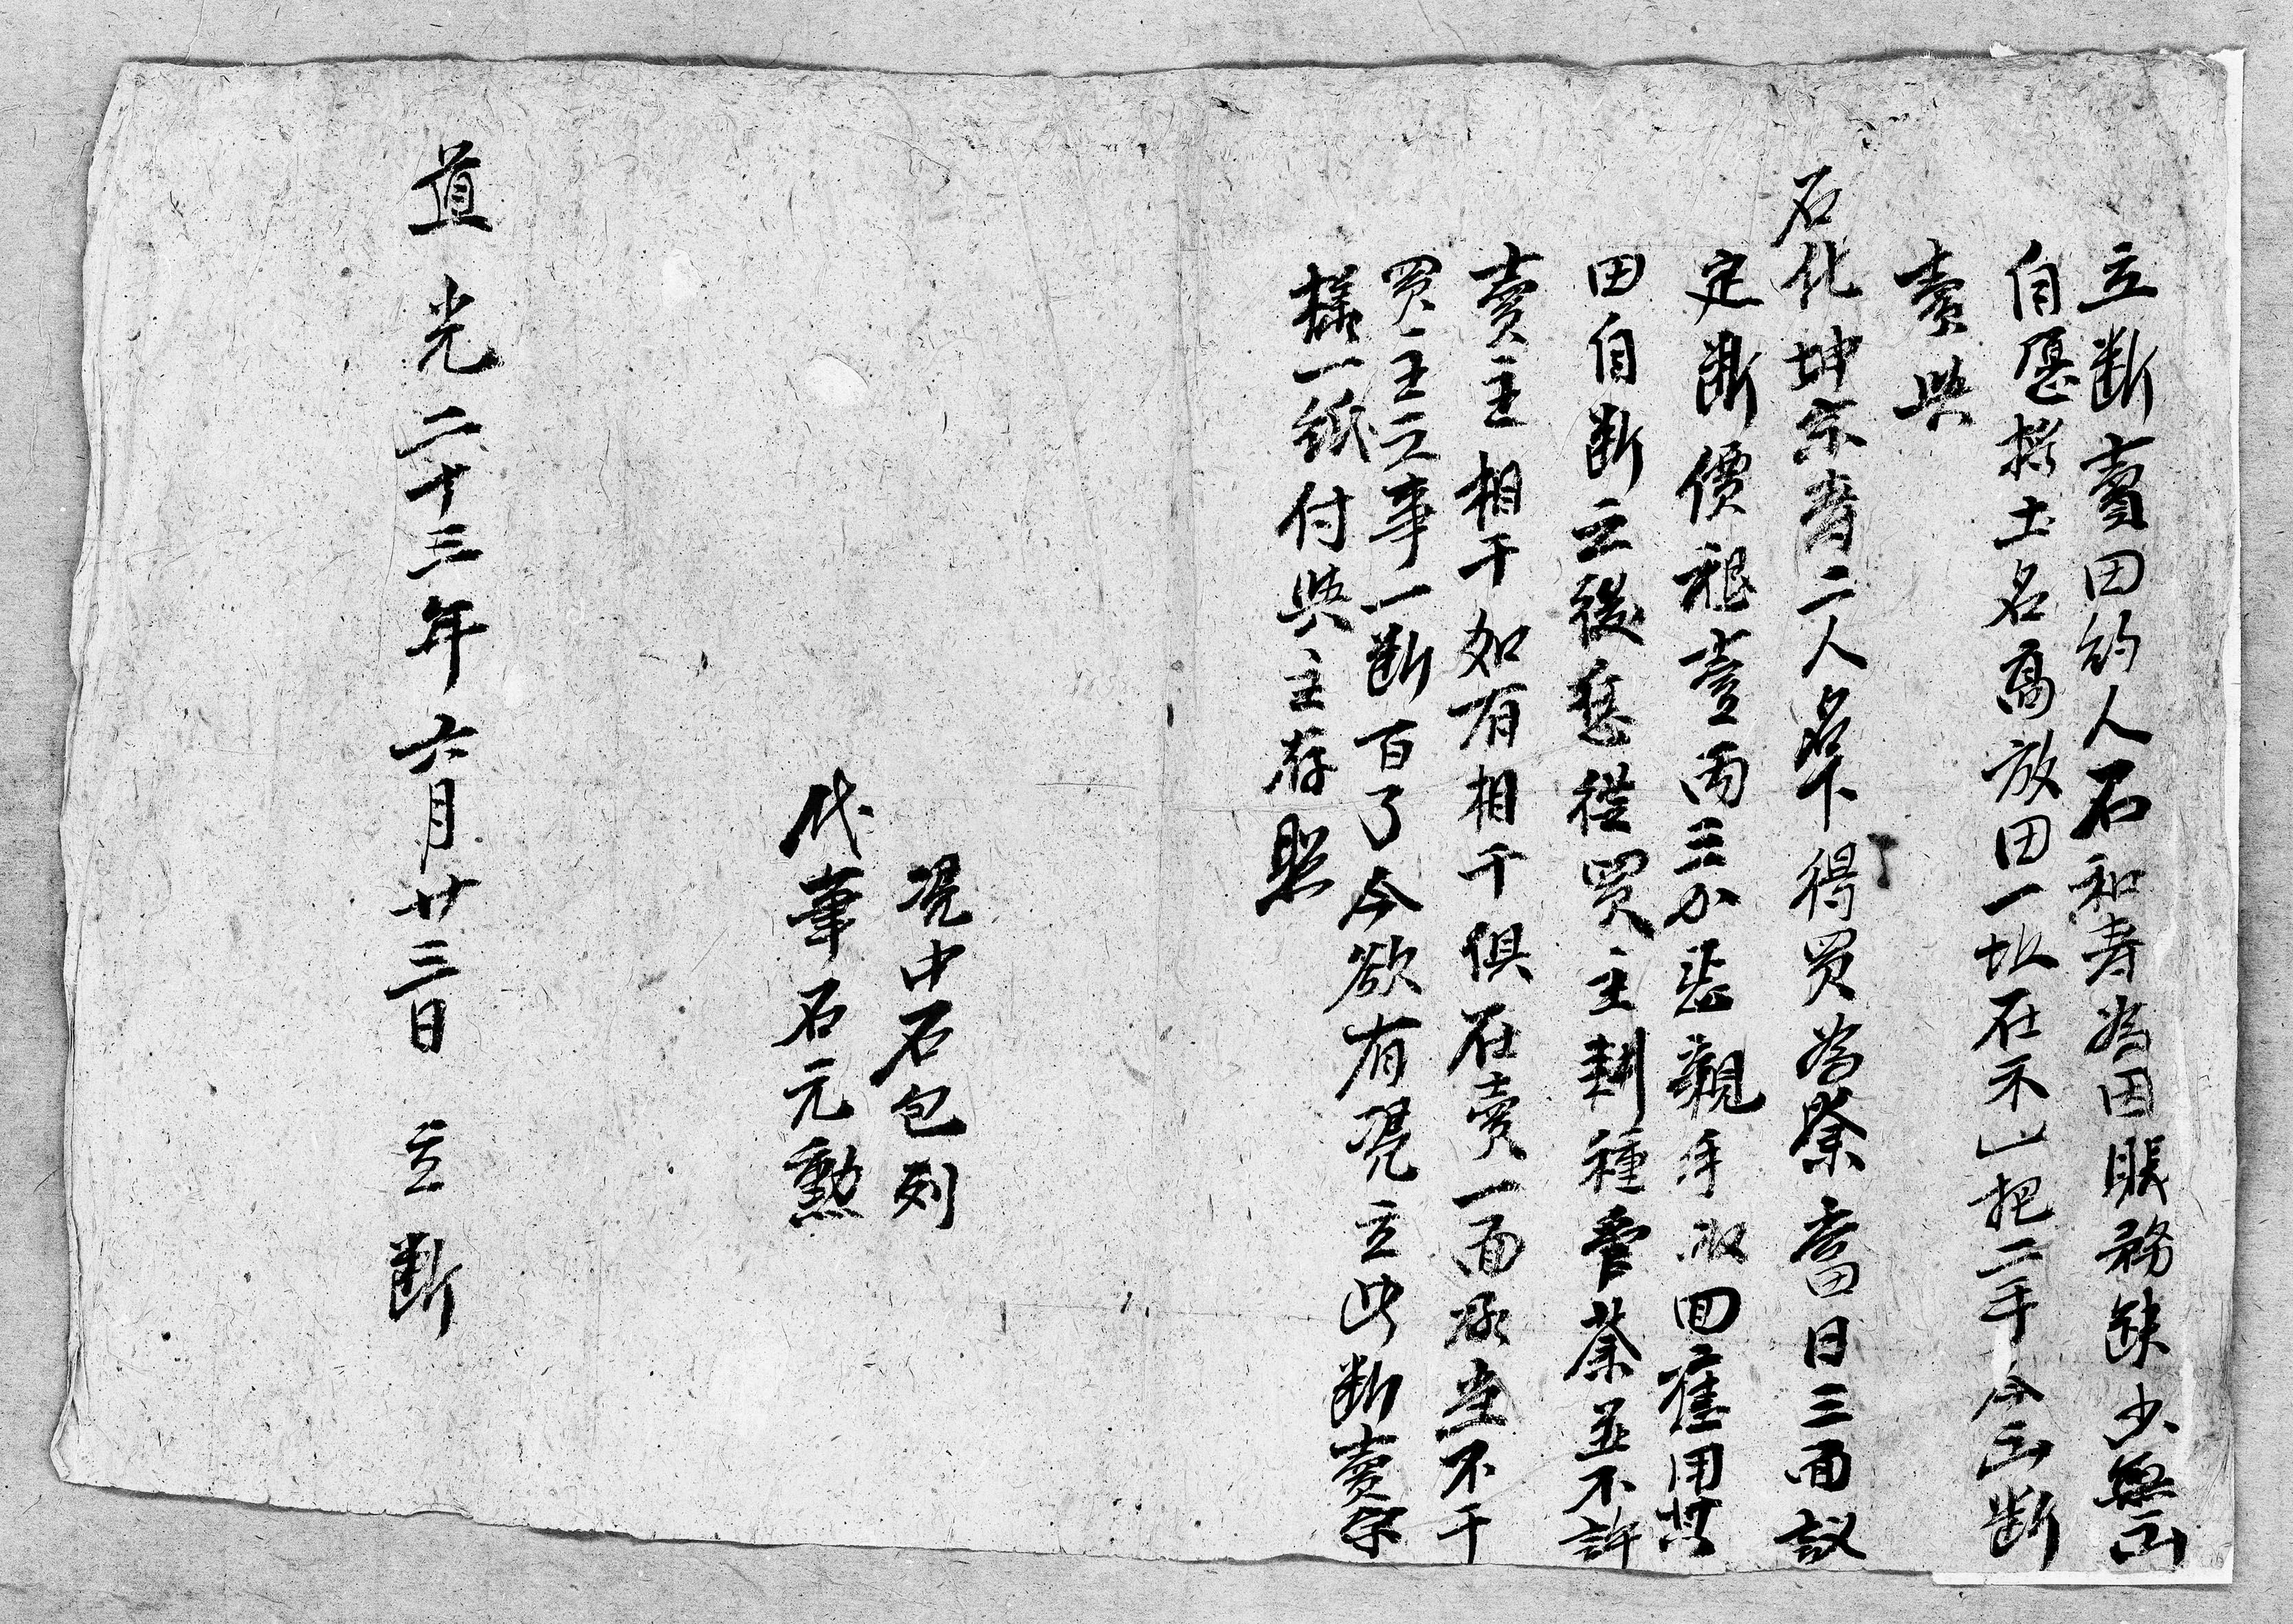 立断賣田約人石和寿為因賬務缺少無出
自愿将土名高放田一坵在不山把二千今立断
賣與
石化坤宗音二人名下得買為祭當日三面議
定断價銀壹両三分悉親手収回應用其
田自断立後悉從買主耕種管業並不許
賣主相干如有相干俱在賣一面承当不干
買主立事一断百了今欲有凭立此断賣字
様一紙付與主存照
凭中石包列
代筆石元勲
道光二十三年六月廿三日 立断